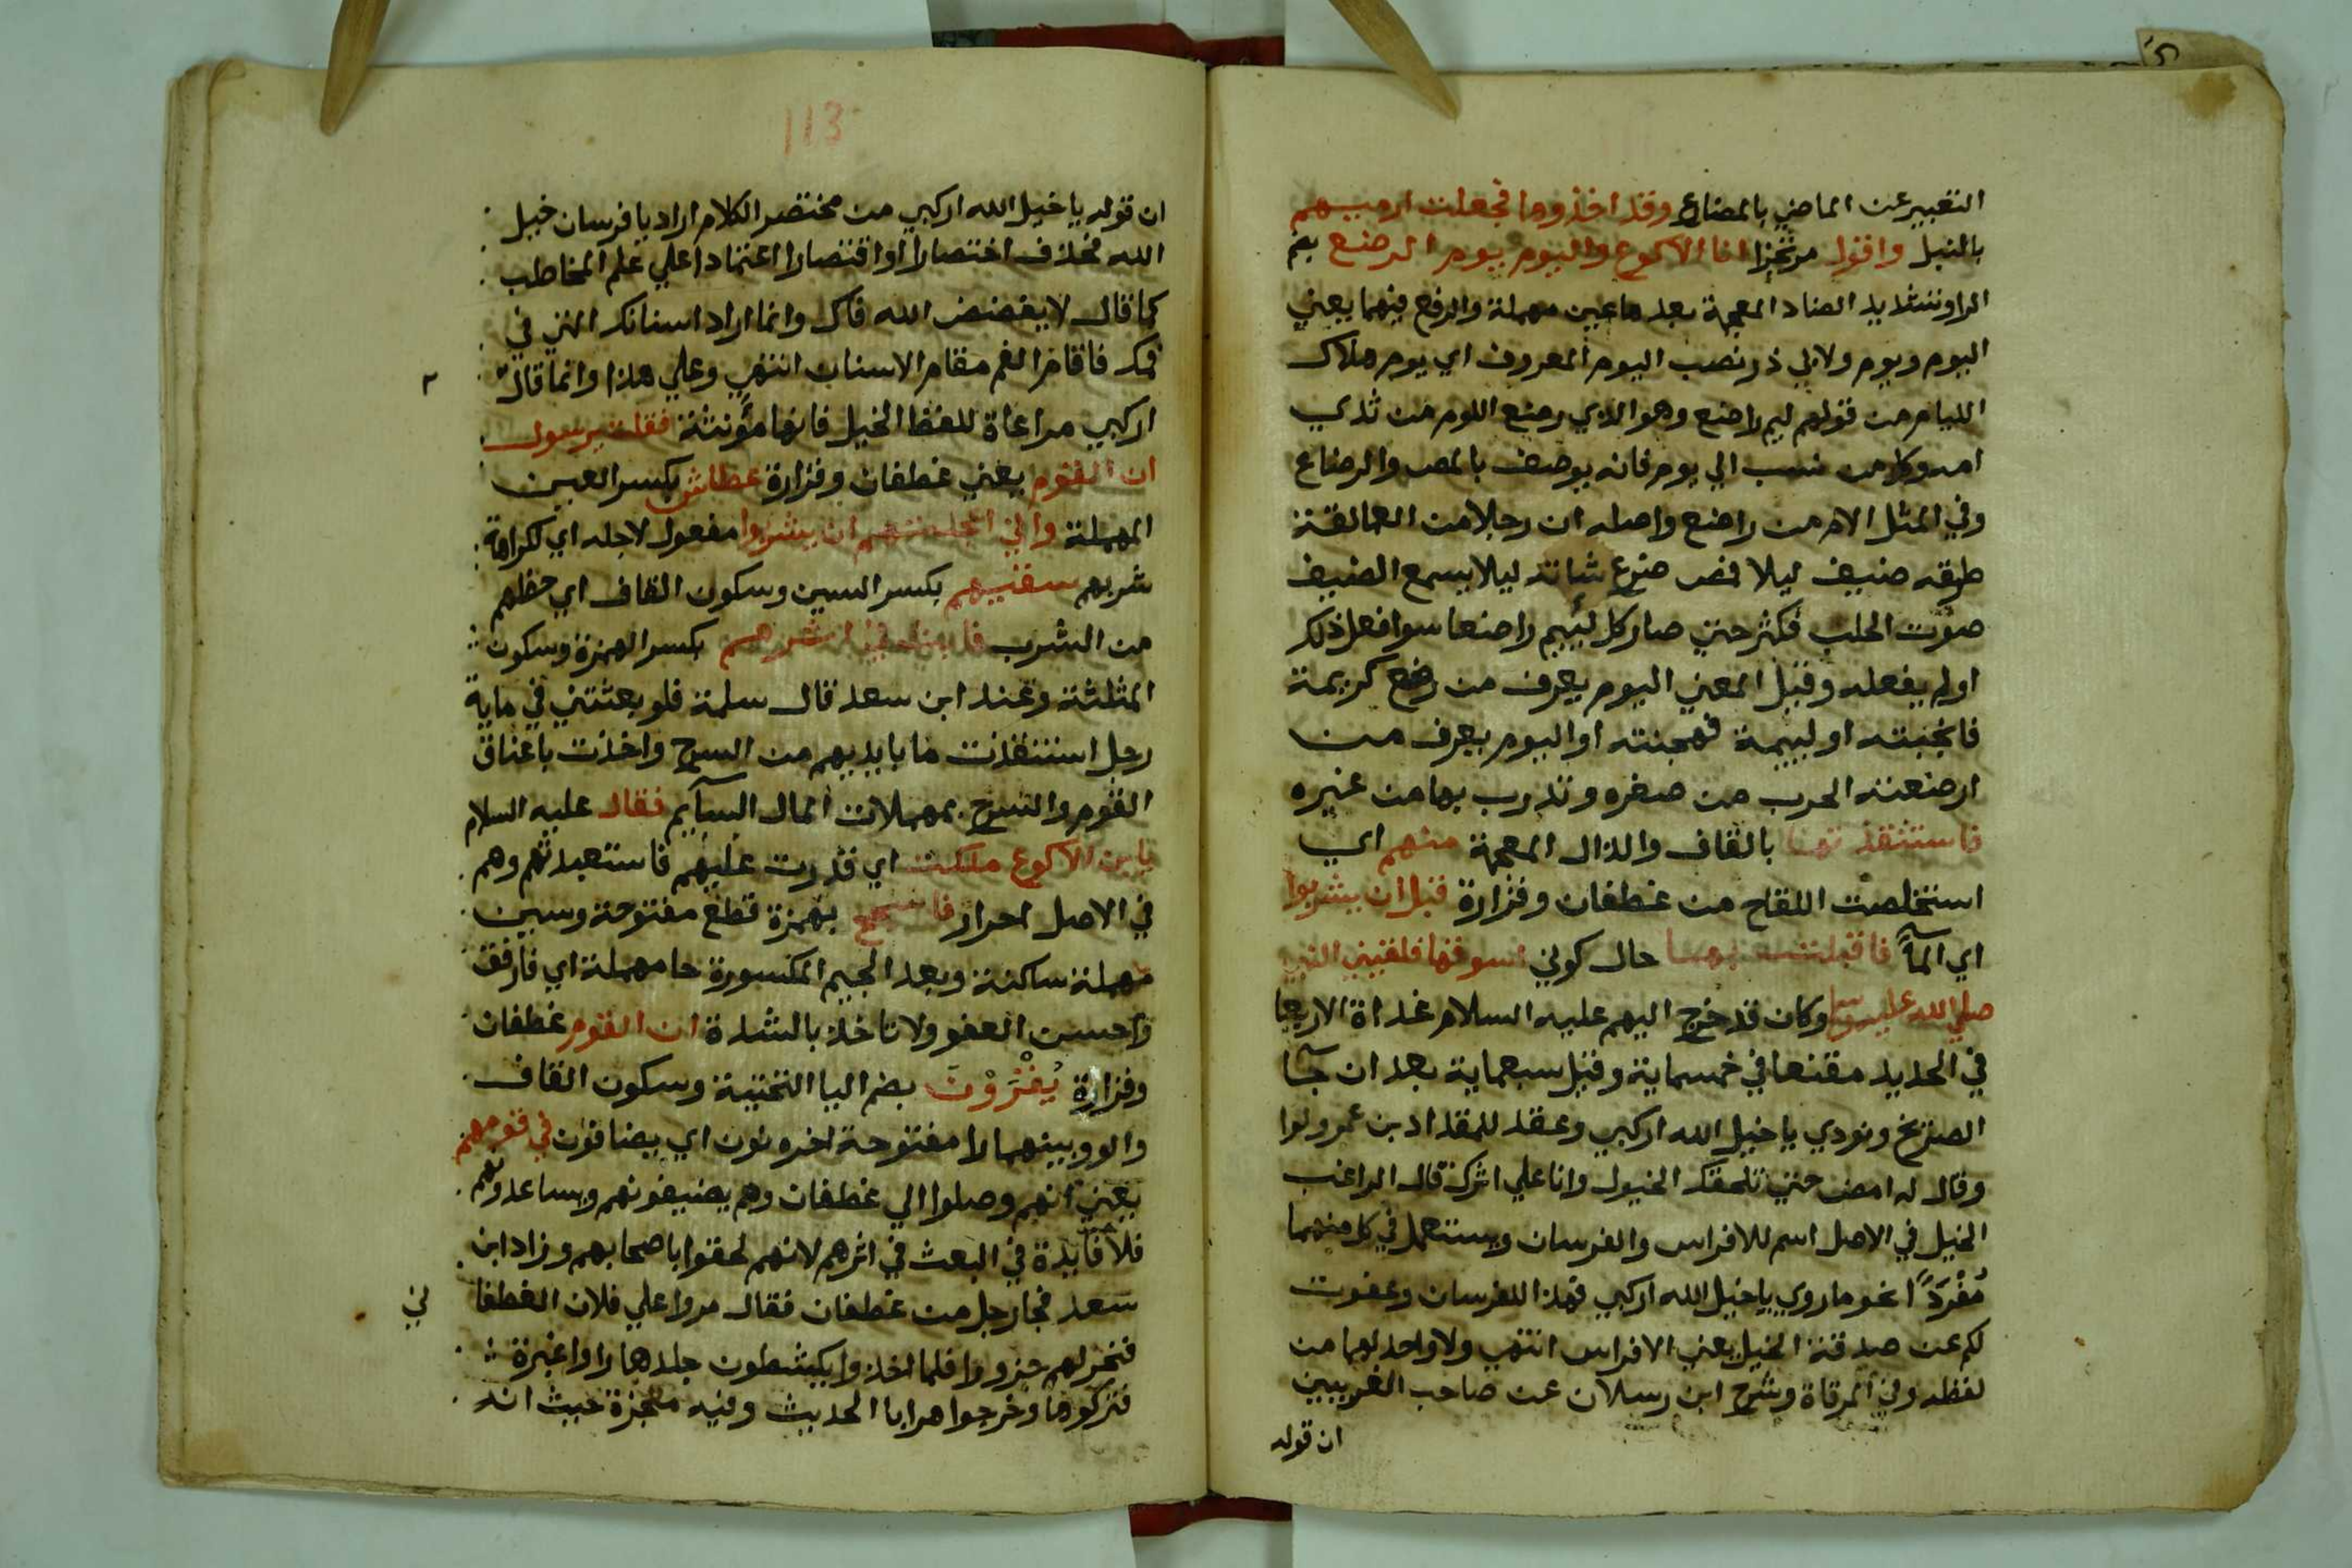 التعبير عن الماضي بالمضارع وقد اخذوها فجعلت ارميهم
بالنبل واقول مرتجزا انا الاكوع واليوم يوم الرضع بضم
الرا وتشديد الضاد المعجمة بعدها عين مهملة والرفع فيهما يعني
اليوم ويوم ولابي ذر نصب اليوم المعروف اي يوم هلاك
الليام من قولهم ليم راضع وهو الذي رضع اللوم من ثدي
امه وكل من نسب الي يوم فانه يوصف بالمص والرضاع
وفي المثل الام من راضع واصله ان رجلا من العمالقة
طرقه ضيف ليلا فمص ضرع شاته ليلا يسمع الضيف
صوت الحلب فكثر حتي صار كل لئيم راضعا سوا فعل ذلك
او لم يفعله وقيل المعني اليوم يعرف من رضع كريمة
فانجبته او ليمة فهجنته او اليوم يعرف من
ارضعته الحرب من صغره وتدرب بها من غيره
فاستنقذتها بالقاف والذال المعجمة منهم اي
استخلصت اللقاح من غطفان وفزارة قبل ان يشربوا
اي المآ فاقبلت بها حال كوني اسوقها فلقيني النبي
صلي الله عليه وسلم وكان قد خرج اليهم عليه السلام غداة الاربعا
في الحديد مقنعا في خمسماية وقيل سبعماية بعد ان جآ
الصريخ ونودي يا خيل الله اركبي وعقد للمقداد بن عمرو لوا
وقال له امض حتي تلحقك الخيول وانا علي اثرك قال الراغب
الخيل في الاصل اسم للافراس والفرسان ويستعمل في كل منهما
مُفْرَدًا نحو ما روي يا خيل الله اركبي فهذا للفرسان وعفوت
لكم عن صدقة الخيل يعني الافراس انتهي ولا واحد لهما من
لفظه وفي المرقاة وشرح ابن رسلان عن صاحب الغريبين
ان قوله
113
ان قوله يا خيل الله اركبي من مختصر الكلام اراد يا فرسان خيل
الله فحذف اختصارا او اقتصارا اعتمادا علي علم المخاطب
كما قال لا يفضض الله فاك وانما اراد اسنانك التي في
فمك فاقام الفم مقام الاسنان انتهي وعلي هذا وانما قال
اركبي مراعاة للفظ الخيل فانها مؤنثة فقلت يرسول
ان القوم يعني غطفان وفزارة عطاش بكسر العين
المهملة واني اعجلتهم ان يشربوا مفعول لاجله اي كراهة
شربهم سقيهم بكسر السين وسكون القاف اي حظهم
من الشرب فابعث في اثرهم بكسر الهمزة وسكون
المثلثة وعند ابن سعد قال سلمة فلو بعثتني في ماية
رجل استنقذت ما بايديهم من السرح واخذت باعناق
القوم والسرح بمهملات المال السآيم فقال عليه السلام
يا بن الاكوع ملكت اي قدرت عليهم فاستعبدتهم وهم
في الاصل احرار فاسجح بهمزة قطع مفتوحة وسين
مهملة ساكنة وبعد الجيم المكسورة حا مهملة اي فارفق
واحسن العفو ولا تاخذ بالشدة ان القوم غطفان
وفزارة يُقْرَوْنَ بضم اليا التحتية وسكون القاف
والوو بينهما را مفتوحة اخره نون اي يضافون في قومهم
يعني انهم وصلوا الي غطفان وهم يضيفونهم ويساعدونهم
فلا فآيدة في البعث في اثرهم لانهم لحقوا باصحابهم وزاد ابن
سعد فجا رجل من غطفان فقال مروا علي فلان الغطفا
ني
فنحر لهم جزورا فلما اخذوا يكشطون جلدها راوا غبرة
فتركوها وخرجوا هرابا الحديث وفيه معجزة حيث انه